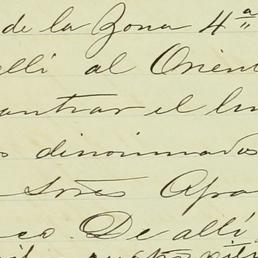 de la Zona 4ª
elli al Orien
ontrar el lu
s dinominados
Sres Apa
co. De allí